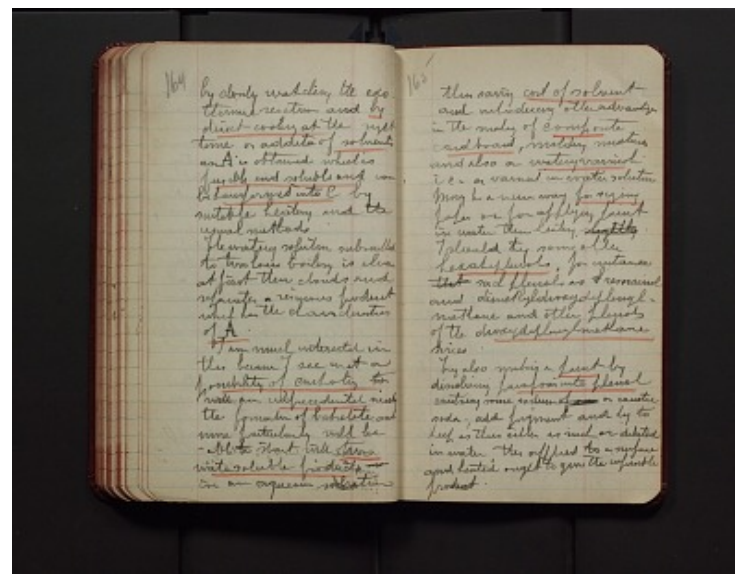 164
by closely watching the exo-
thermic reaction and by
direct cooling at the right
time or addition of solvents
an A is obtained which is
fusible and soluble and can
be transformed into C by
suitable heating and the
usual methods.
The watery solution submitted
to two hours boiling is clear
at first then clouds and
separates a resinous product
which has the characteristics
of A.
I am much interested in
this because I see in it a
possibility of
the formation of bakelite and
more particularly will be
able to start with
water soluble products
in an aqueous solution
165
thus saving cost of solvent
and introducing other advantages
in the making of composite
cardboard, molding mixtures
and also a watery varnish
i.e. a varnish in water solution
May be a new way for sizing
paper or for applying paint
in water then
I should try some other
phenols, for instance
phenols as resorcin
and dimethyldioxydiphenyl-
methane and other phenols
of the dioxydiphenylmethane
series.
Try also making a paint by
dissolving into phenol
some or caustic
soda, add pigment and try to
keep as thus either as such or diluted
in water. This applied to a surface
and heated ought to give the infusible
product.